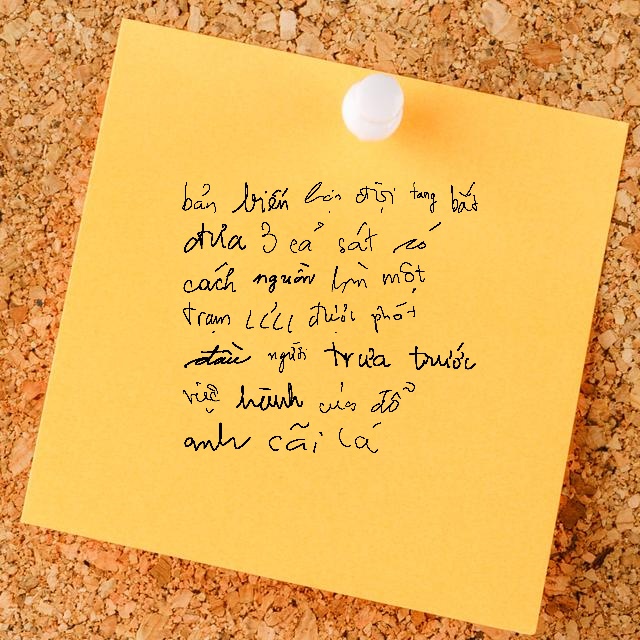 bản biến bọn đợi tang bắt
đưa 3 cả sát có
cách nguồn lợn một
trạm được phát
đầu người trưa trước
việc hành của đổ
anh cãi lá